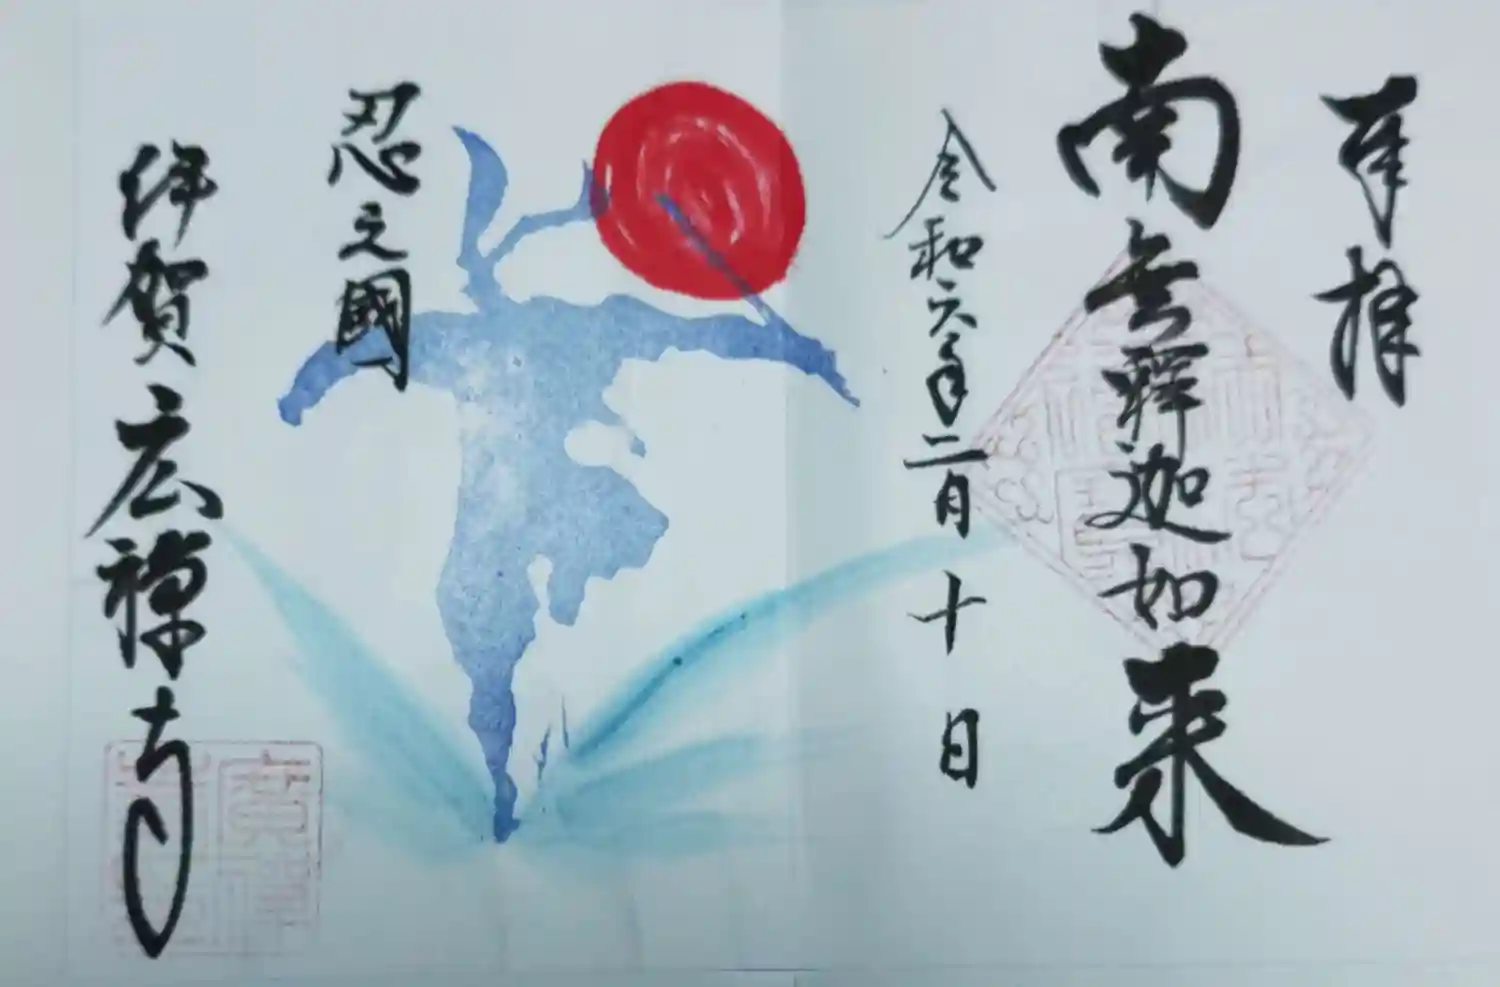 奉拝
南無釋迦如来
令和六年二月十日
忍之國
伊賀広禅寺